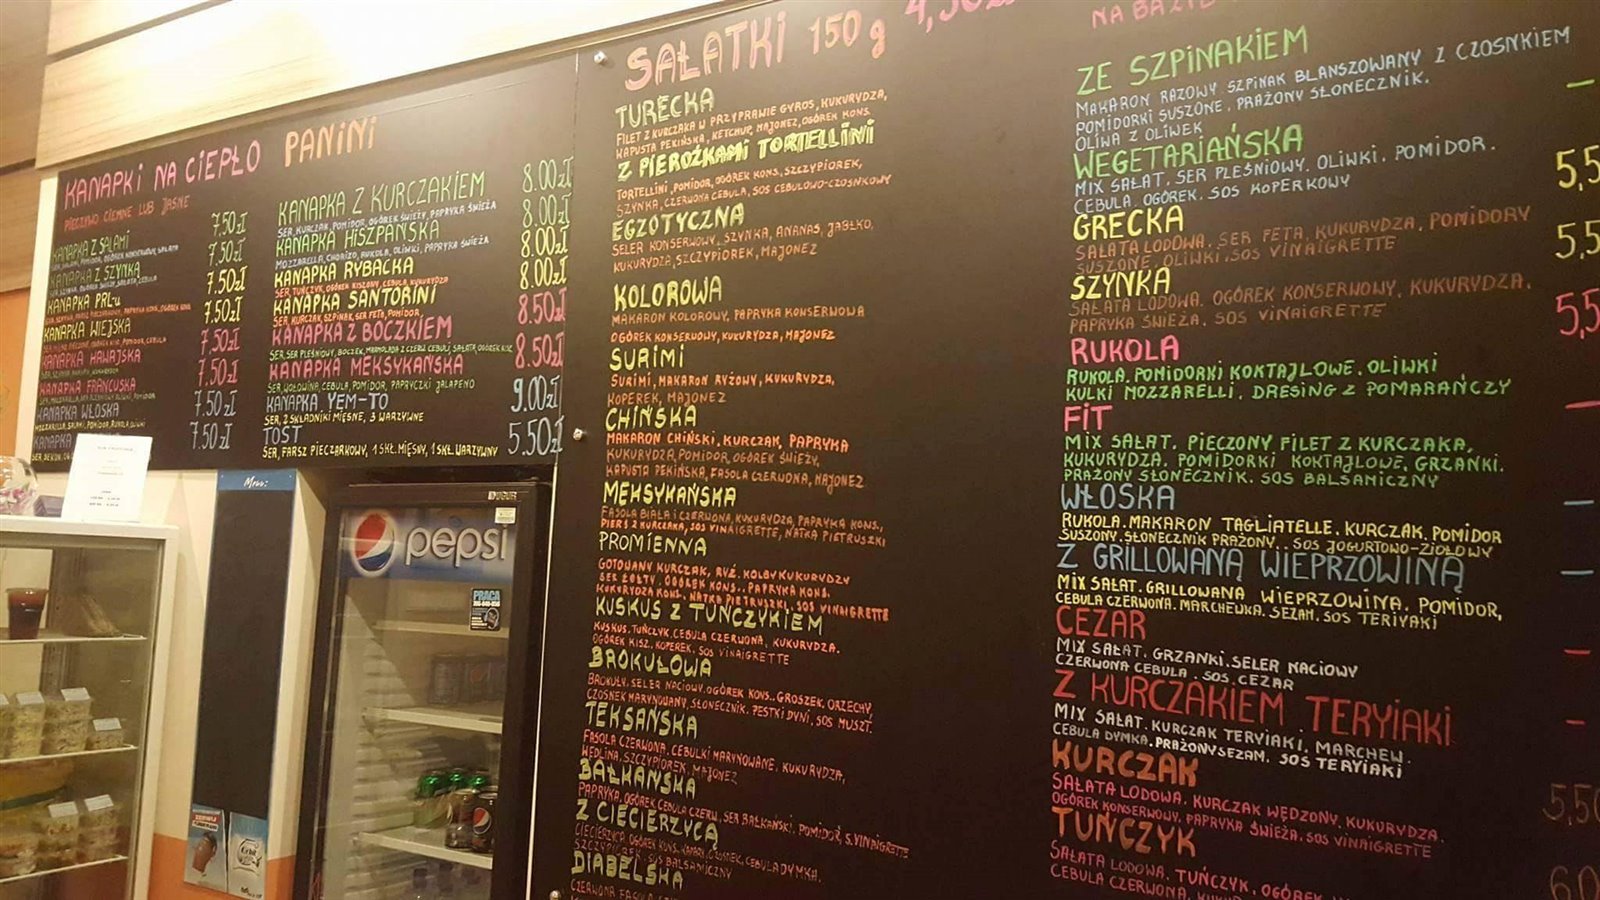 KANAPKI NA CIEPŁO
PIECZYWO CIEMNE LUB JASNE
KANAPKA Z SALAMI 7,50zł
KANAPKA Z SZYNKĄ 7,50zł
KANAPKA PRLu 7.50zł
KANAPKA WIEJSKA 7.50zł
KANAPKA HAWAJSKA 7.50zł
KANAPKA FRANCUSKA 7.50zł
KANAPKA WŁOSKA 7.50zł
MOZZARELLA, SALAMI, POMIDOR, RUKOLA, OLIWKI
KANAPKA 7.50zł
PANINI
KANAPKA Z KURCZAKIEM 8.00zł
SER, KURCZAK, POMIDOR, OGÓREK ŚWIEŻY, PAPRYKA ŚWIEŻA
KANAPKA HISZPAŃSKA 8.00zł
MOZZARELLA, CHORIZO, RUKOLA, OLIWKI, PAPRYKA ŚWIEŻA
KANAPKA RYBACKA 8.00zł
SER, TUŃCZYK, OGÓREK KISZONY, CEBULA, KUKURYDZA
KANAPKA SANTORINI 8.00zł
SER, KURCZAK, SZPINAK, SER FETA, POMIDOR,
KANAPKA Z BOCZKIEM 8.50zł
SER, SER PLEŚNIOWY, BOCZEK, MARMOLADA Z CZERW. CEBULI, SAŁATA, OGÓREK KISZ.
KANAPKA MEKSYKAŃSKA 8.50zł
SER, WOŁOWINA, CEBULA, POMIDOR, PAPRYCZKI JALAPENO
KANAPKA YEM-TO 9.00zł
SER, 2 SKŁADNIKI MIĘSNE, 3 WARZYWNE
TOST 5.50zł
SER, FARSZ PIECZARKOWY, 1 SKŁ. MIĘSNY, 1 SKŁ. WARZYWNY
Menu:
pepsi
PRACA
SAŁATKI 150g 4,50zł
TURECKA
FILET Z KURCZAKA W PRZYPRAWIE GYROS, KUKURYDZA,
KAPUSTA PEKIŃSKA, KETCHUP, MAJONEZ, OGÓREK KONS.
Z PIEROŻKAMI TORTELLINI
TORTELLINI, POMIDOR, OGÓREK KONS., SZCZYPIOREK,
SZYNKA, CZERWONA CEBULA, SOS CEBULOWO-CZOSNKOWY
EGZOTYCZNA
SELER KONSERWOWY, SZYNKA, ANANAS, JABŁKO,
KUKURYDZA, SZCZYPIOREK, MAJONEZ
KOLOROWA
MAKARON KOLOROWY, PAPRYKA KONSERWOWA
OGÓREK KONSERWOWY, KUKURYDZA, MAJONEZ
SURIMI
SURIMI, MAKARON RYŻOWY, KUKURYDZA,
KOPEREK, MAJONEZ
CHIŃSKA
MAKARON CHIŃSKI, KURCZAK, PAPRYKA
KUKURYDZA, POMIDOR, OGÓREK ŚWIEŻY,
KAPUSTA PEKIŃSKA, FASOLA CZERWONA, MAJONEZ
MEKSYKAŃSKA
FASOLA BIAŁA I CZERWONA, KUKURYDZA, PAPRYKA KONS.,
PIERŚ Z KURCZAKA, SOS VINAIGRETTE, NATKA PIETRUSZKI
PROMIENNA
GOTOWANY KURCZAK, RYŻ, KOLBY KUKURYDZY
SER ŻÓŁTY, OGÓREK KONS., PAPRYKA KONS.
KUKURYDZA KONS. NATKA PIETRUSZKI, SOS VINAIGRETTE
KUSKUS Z TUŃCZYKIEM
KUSKUS, TUŃCZYK, CEBULA CZERWONA, KUKURYDZA.
OGÓREK KISZ. KOPEREK, SOS VINAIGRETTE
BROKUŁOWA
BROKUŁY, SELER NACIOWY, OGÓREK KONS., GROSZEK, ORZECHY,
CZOSNEK MARYNOWANY, SŁONECZNIK, PESTKI DYNI, SOS MUSZT.
TEKSAŃSKA
FASOLA CZERWONA, CEBULKI MARYNOWANE, KUKURYDZA,
WĘDLINA, SZCZYPIOREK, MAJONEZ
BAŁKAŃSKA
PAPRYKA, OGÓREK, CEBULA CZERW, SER BAŁKAŃSKI, POMIDOR, S. VINAIGRETTE
Z CIECIERZYCĄ
CIECIERZYCA, OGÓREK KONS., CZOSNEK, CEBULA DYMKA,
SZCZYPIOREK, SOS BALSAMICZNY
DIABELSKA
CZERWONA FASOLA
NA BAZIE
ZE SZPINAKIEM
MAKARON RAZOWY, SZPINAK BLANSZOWANY Z CZOSNKIEM
POMIDORKI SUSZONE, PRAŻONY SŁONECZNIK.
OLIWA Z OLIWEK
WEGETARIAŃSKA
MIX SAŁAT, SER PLEŚNIOWY, OLIWKI, POMIDOR.
CEBULA, OGÓREK, SOS KOPERKOWY 5,5
GRECKA
SAŁATA LODOWA, SER FETA, KUKURYDZA, POMIDORY
SUSZONE, OLIWKI, SOS VINAIGRETTE 5,5
SZYNKA
SAŁATA LODOWA, OGÓREK KONSERWOWY, KUKURYDZA,
PAPRYKA ŚWIEŻA, SOS VINAIGRETTE 5,5
RUKOLA
RUKOLA, POMIDORKI KOKTAJLOWE, OLIWKI
KULKI MOZZARELLI, DRESING Z POMARAŃCZY
FIT
MIX SAŁAT, PIECZONY FILET Z KURCZAKA,
KUKURYDZA, POMIDORKI KOKTAJLOWE, GRZANKI.
PRAŻONY SŁONECZNIK, SOS BALSAMICZNY
WŁOSKA
RUKOLA, MAKARON TAGLIATELLE, KURCZAK, POMIDOR
SUSZONY, SŁONECZNIK PRAŻONY, SOS JOGURTOWO-ZIOŁOWY
Z GRILLOWANĄ WIEPRZOWINĄ
MIX SAŁAT, GRILLOWANA WIEPRZOWINA, POMIDOR,
CEBULA CZERWONA, MARCHEWKA, SEZAM, SOS TERIYAKI
CEZAR
MIX SAŁAT, GRZANKI, SELER NACIOWY
CZERWONA CEBULA, SOS CEZAR
Z KURCZAKIEM TERYIAKI
MIX SAŁAT, KURCZAK TERYIAKI, MARCHEW.
CEBULA DYMKA, PRAŻONY SEZAM, SOS TERYIAKI
KURCZAK
SAŁATA LODOWA, KURCZAK WĘDZONY, KUKURYDZA.
OGÓREK KONSERWOWY, PAPRYKA ŚWIEŻA, SOS VINAIGRETTE 5,50
TUŃCZYK
SAŁATA LODOWA, TUŃCZYK, OGÓREK
CEBULA CZERWONA, 6,0